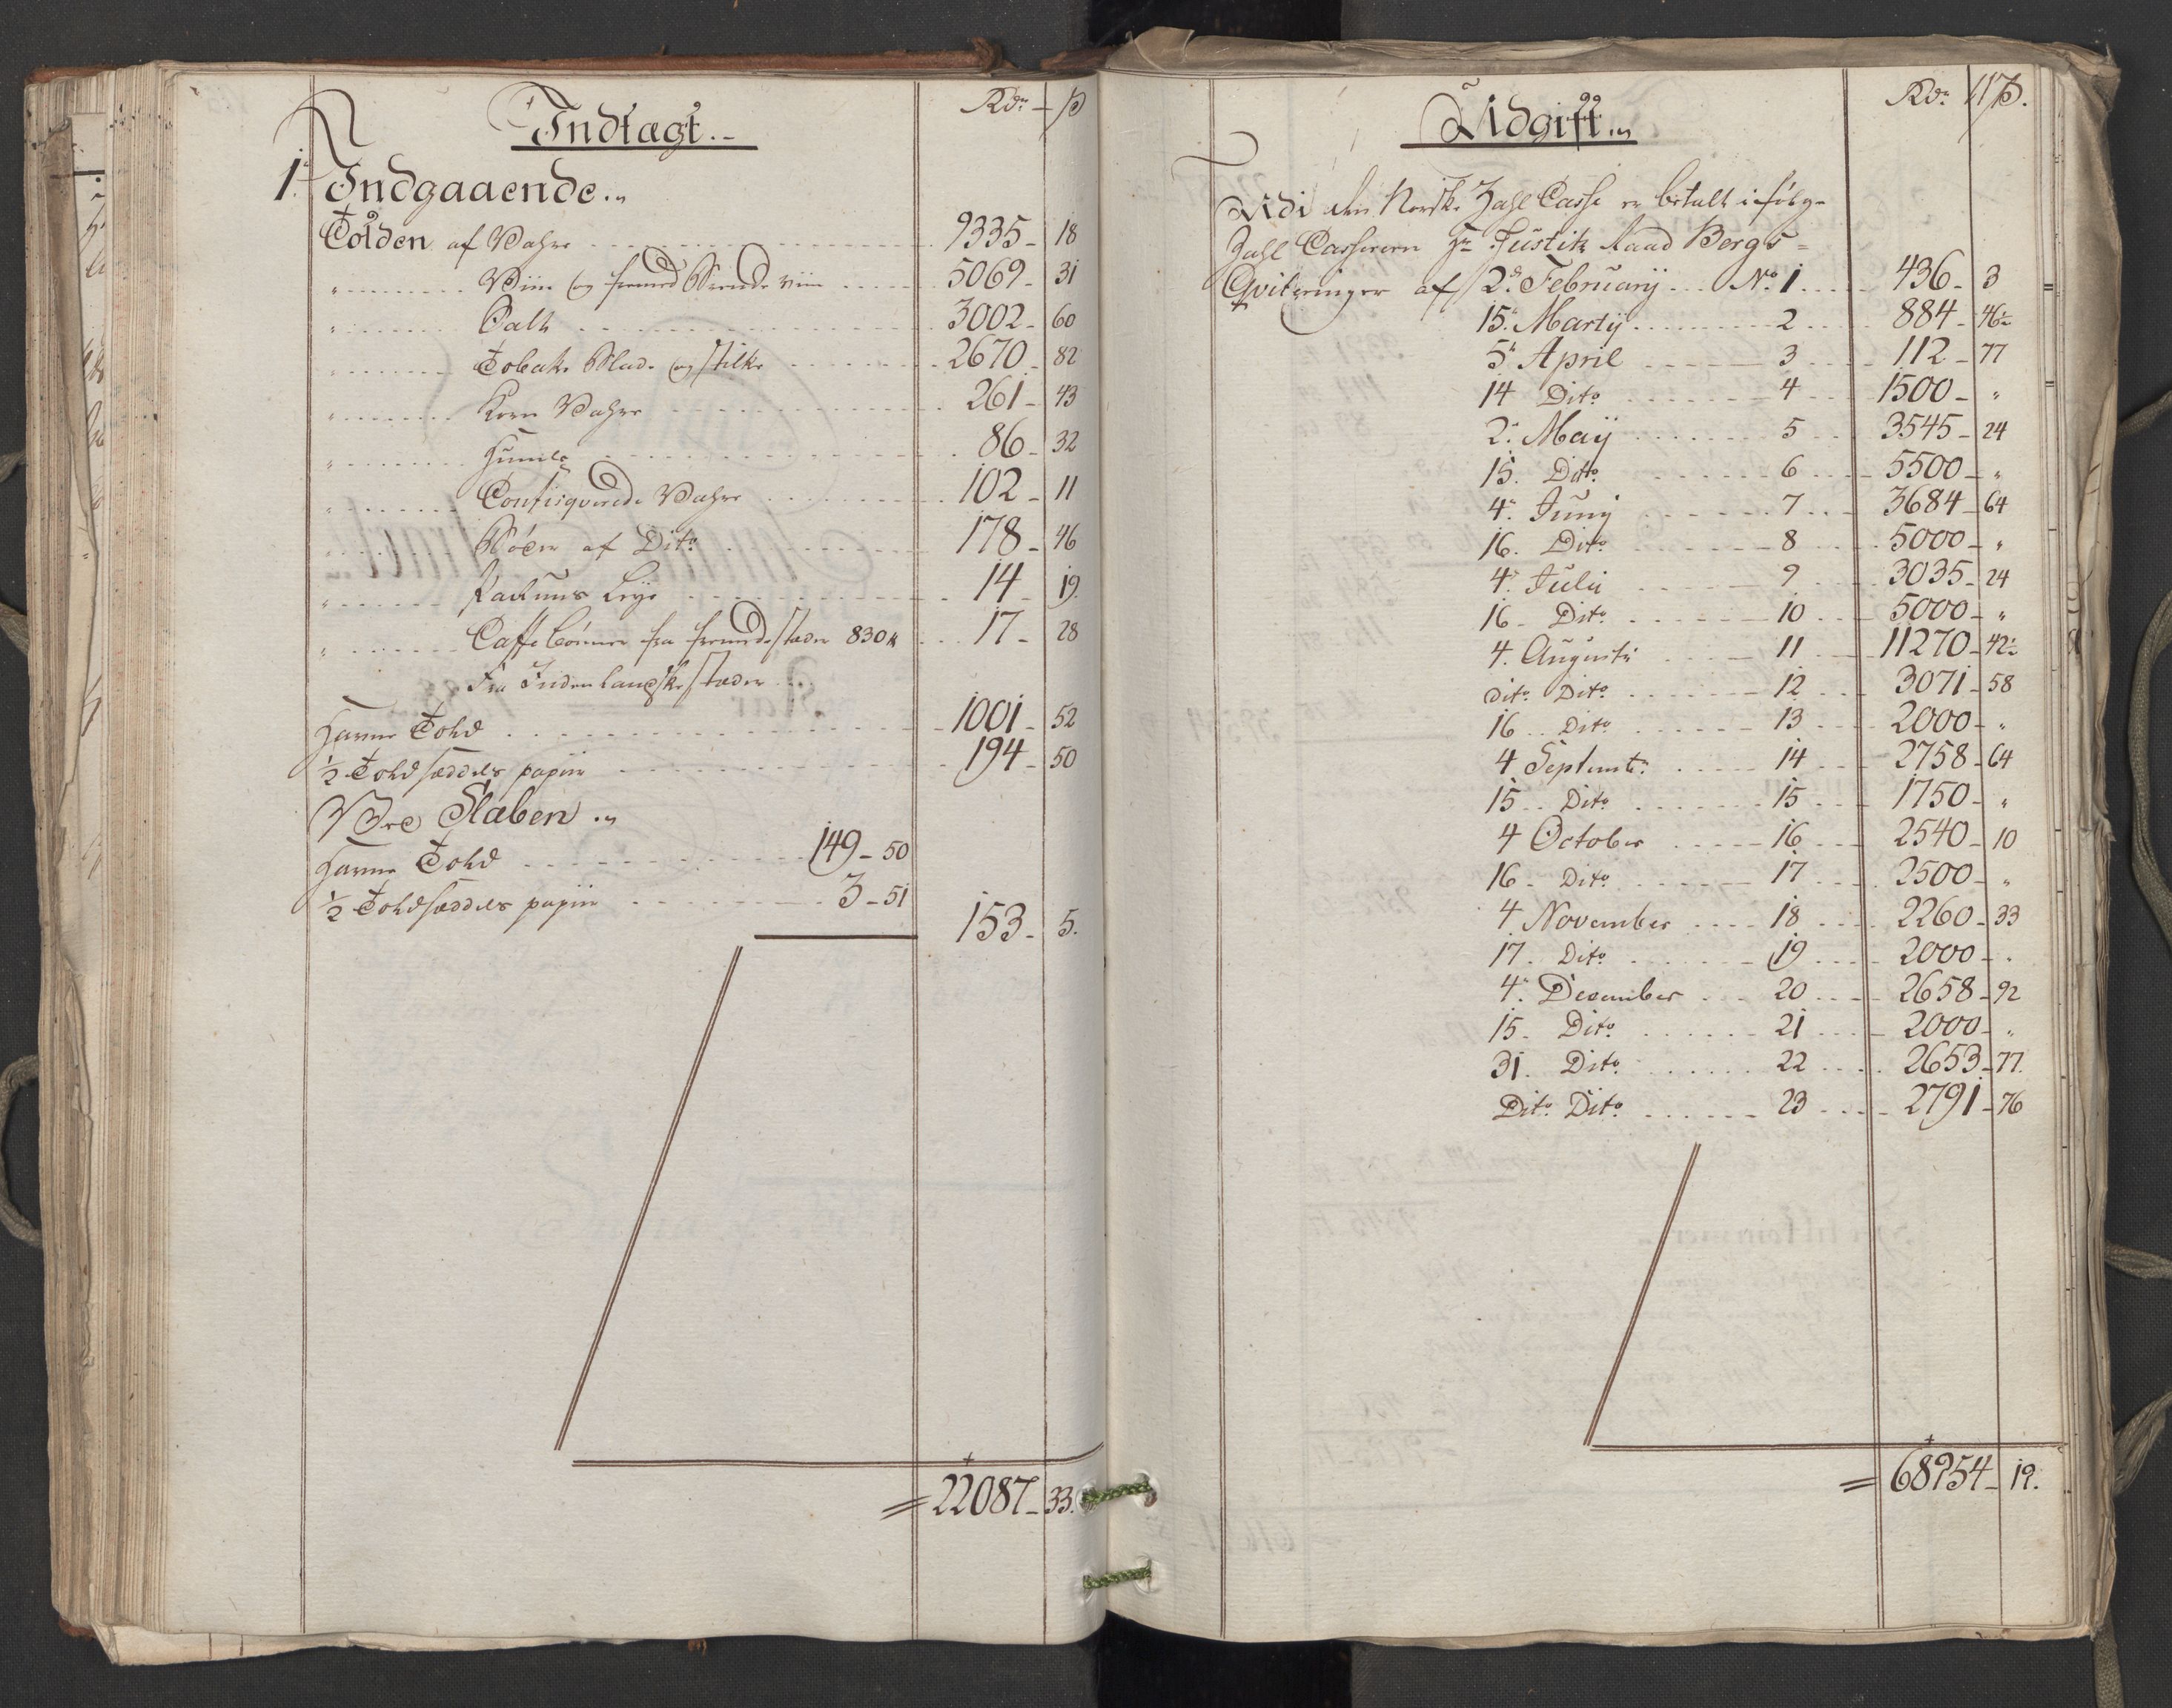 Indtægt.
Rdr. ß
1. Indgaaende.
Tolden af Vahre 9335 - 18
" Viin og fremed Brende viin 5069 - 31
" Salt 3002 - 60
" Tobaks Blade og Stilke 2670 - 82
" Korn Vahre 261 - 43
" Humle 86 - 32
" Confisqverede Vahre 102 - 11
" Bøder af Dito 178 - 46
" Pakhuus Leye 14 - 19
" Caffebønner fra fremede stæder 830 ℔ 17 - 28
Fra Indenlandske stæder
Havne Told 1001 - 52
½ Toldsæddels papiir 194 - 50
Staben
Havne Told 149 - 50
½ Toldsæddels papiir 3 - 51
153 - 5.
= 22087 - 33.
117
Udgift.
Rdr. ß.
Udi den Norske Zahl Casse er betalt ifølge
Zahl Casserern Hr. Justitz Raad Bergs
Qvitteringer af 2d. February No. 1 436 - 3
15. Marty 2 884 - 46½
5. April 3 112 - 77
14 Dito 4 1500 - "
2. May 5 3545 - 24
15. Dito 6 5500 - "
4. Juny 7 3684 - 64
16. Dito 8 5000 - "
4. July 9 3035 - 24
16 - Dito 10 5000 - "
4. Augusti 11 11270 - 42½
dito Dito 12 3071 - 58
16 Dito 13 2000 - "
4 Septembr. 14 2758 - 64
15 Dito 15 1750 - "
4 October 16 2540 - 10
16 - Dito 17 2500 - "
4 November 18 2260 - 33
17. Dito 19 2000 - "
4. December 20 2658 - 92
15. Dito 21 2000 - "
31. Dito 22 2653 - 77.
Dito Dito 23 2791 - 76
= 68954 - 19.